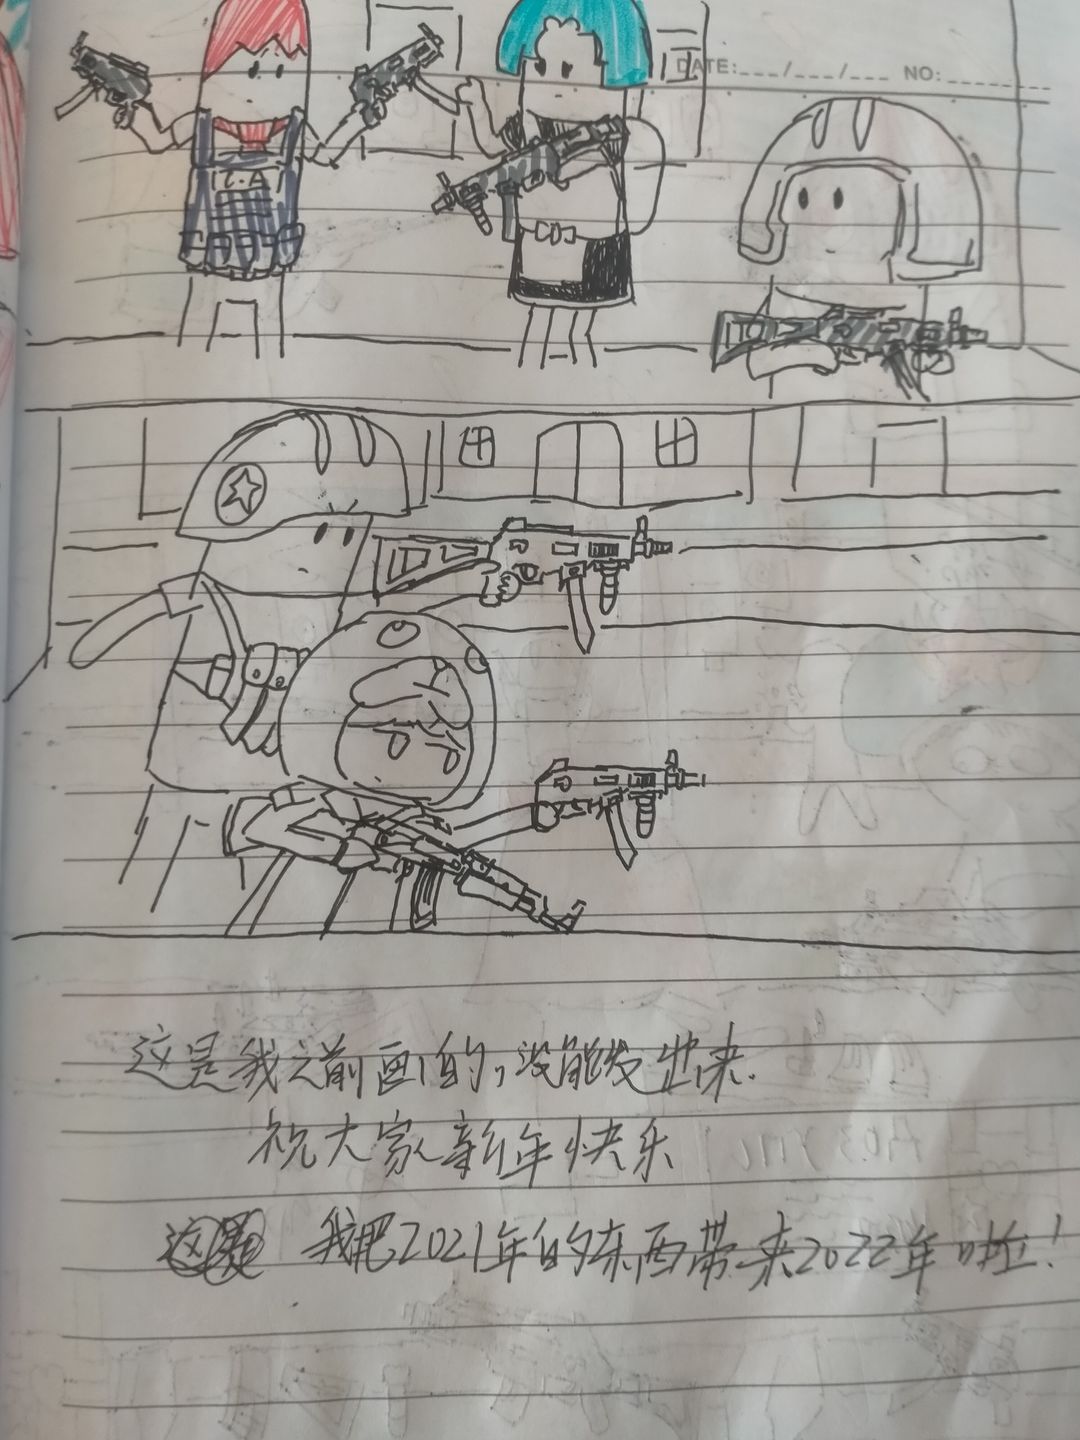 DATE: ___/___/___ NO: ______
这是我之前画的,没能发出来.
祝大家新年快乐
我把2021年的东西带来2022年啦!